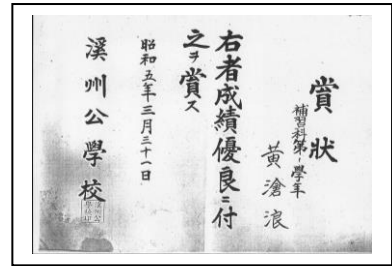 賞狀
補習科第一學年
黃滄浪
右者成績優良ニ付
之ヲ賞ス
昭和五年三月三十一日
溪州公學校